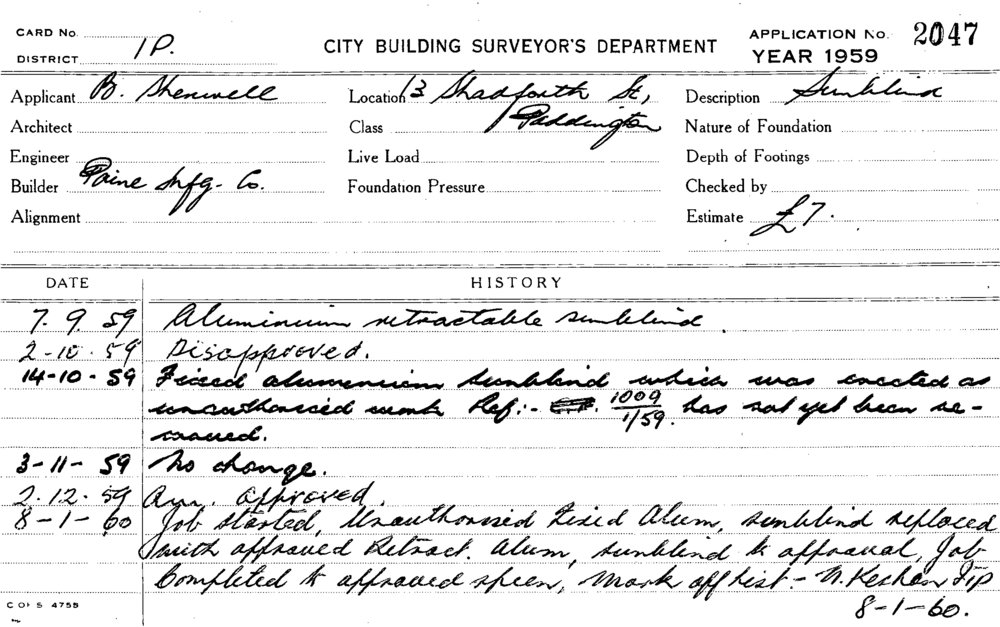 CARD No.
DISTRICT 1P.
CITY BUILDING SURVEYOR'S DEPARTMENT
APPLICATION No. 2047
YEAR 1959
Applicant B. Shenwell Location 13 Shadforth St, Description Sunblind
Architect Class Paddington Nature of Foundation
Engineer Live Load Depth of Footings
Builder Paine Mfg. Co. Foundation Pressure Checked by
Alignment Estimate £7.
DATE HISTORY
7. 9. 59 Aluminium retractable sunblind
2-10-59 Disapproved.
14-10-59 Fixed alumenium sunblind which was erected as
unauthorised work Ref:- 1009/1/59. has not yet been re-
moved.
3-11-59 No change.
2.12.59 Approved.
8-1-60 Job started, Unauthorised Fixed Alum, sunblind replaced
with approved Retract. Alum, sunblind to approval, Job
Completed to approved specn, Mark off list - N.
8-1-60.
C OF S 4755